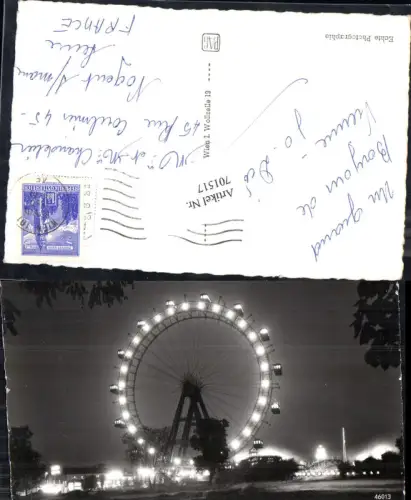 Un grand
Bonjour de
Vienne -
Jo. Déb
Echte Photographie
Wien I. Wollzeile 19
Artikel Nr.
701517
Mr et Me Chandelier
45 Rue Coulmiers 45 -
Nogent s/marne
Seine
FRANCE
46013